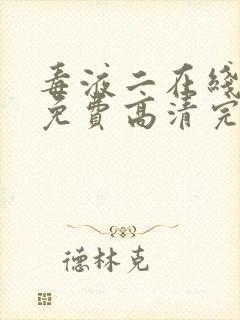 毒液二在线
免费高清完
德林克